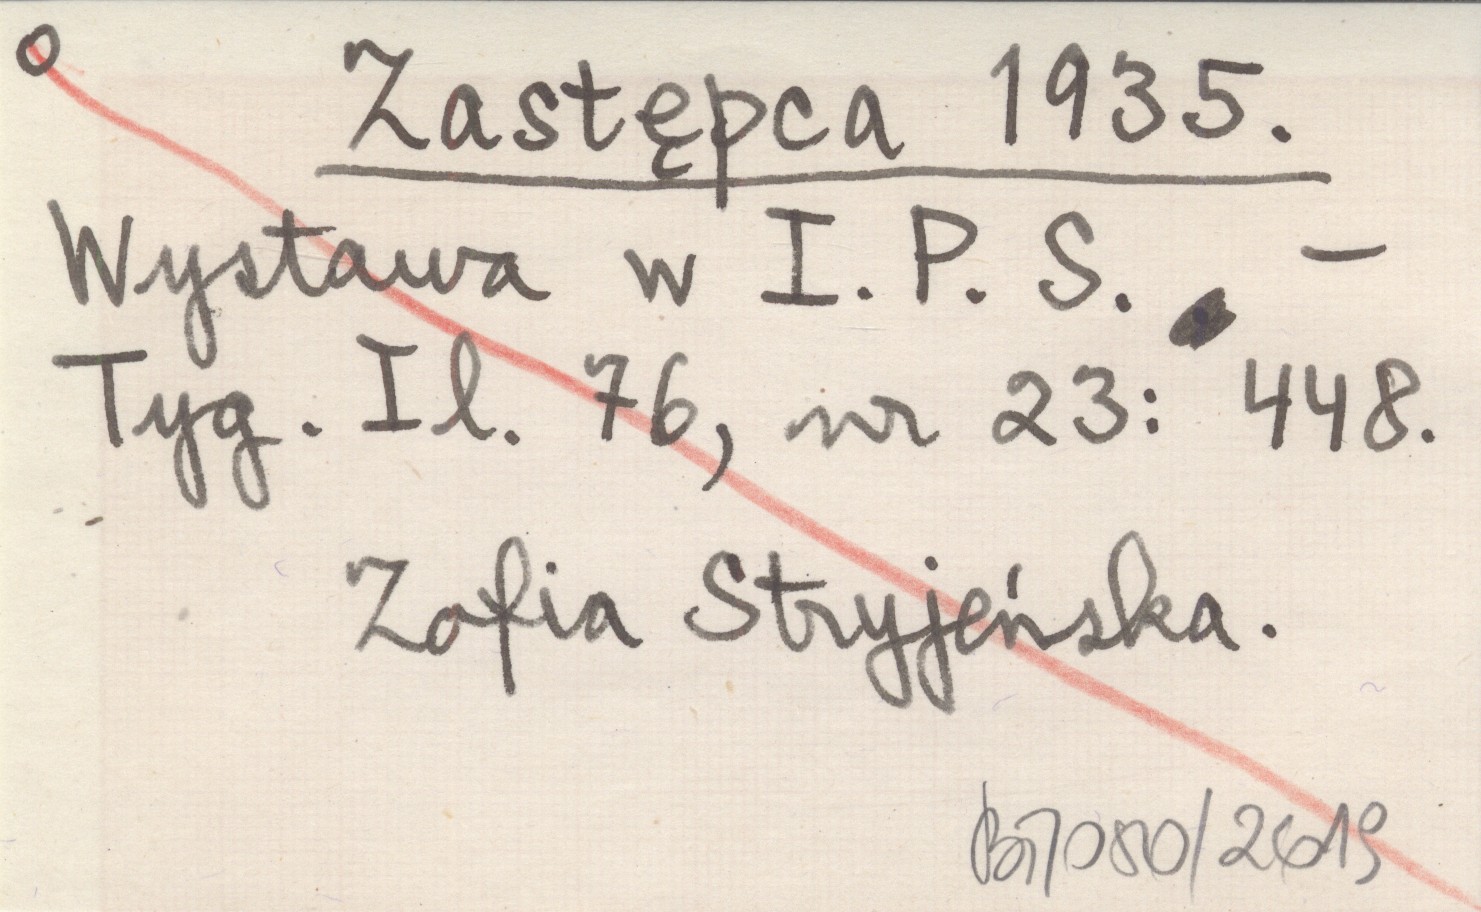 Zastępca 1935.
Wystawa w I. P. S. —
Tyg. Il. 76, nr 23: 448.
Zofia Stryjeńska.